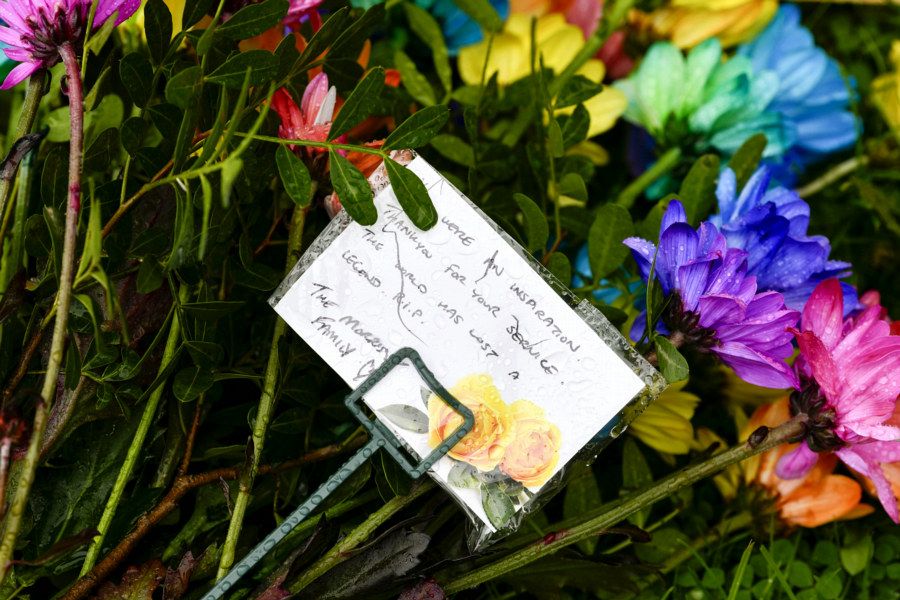 WERE AN INSPIRATION.
THANKYOU FOR YOUR SERVICE.
THE WORLD HAS LOST A
LEGEND. R.I.P.
THE
FAMILY